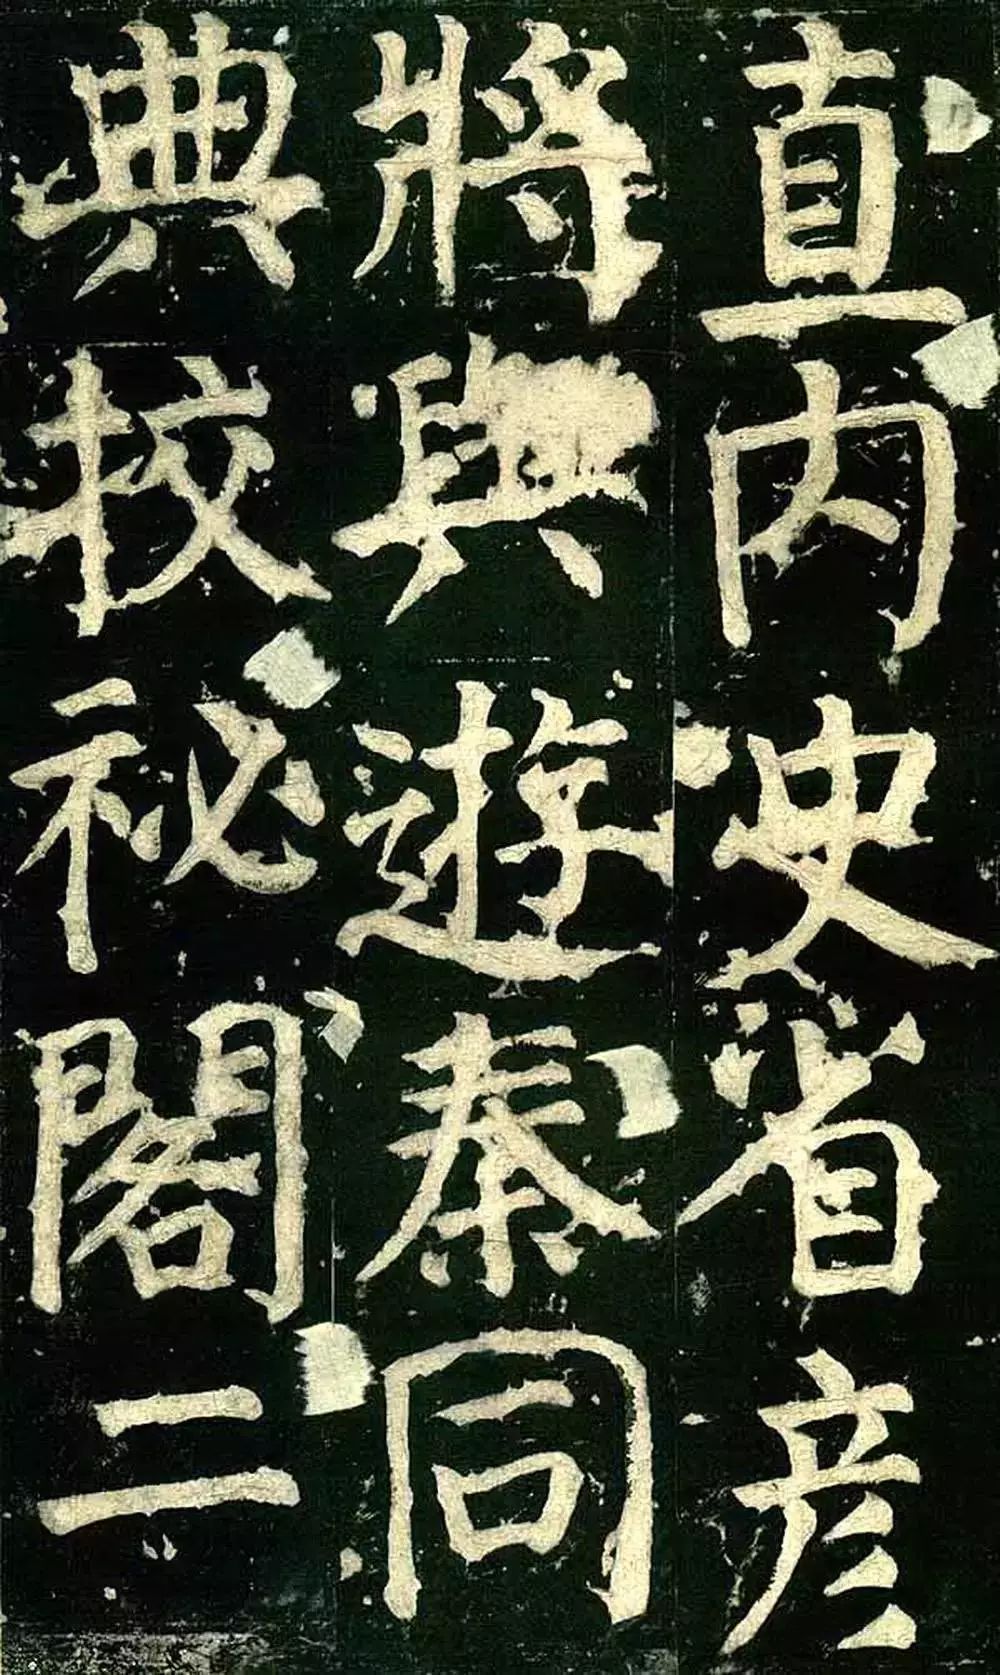 直內史省彦
將與遊秦同
典校祕閣二